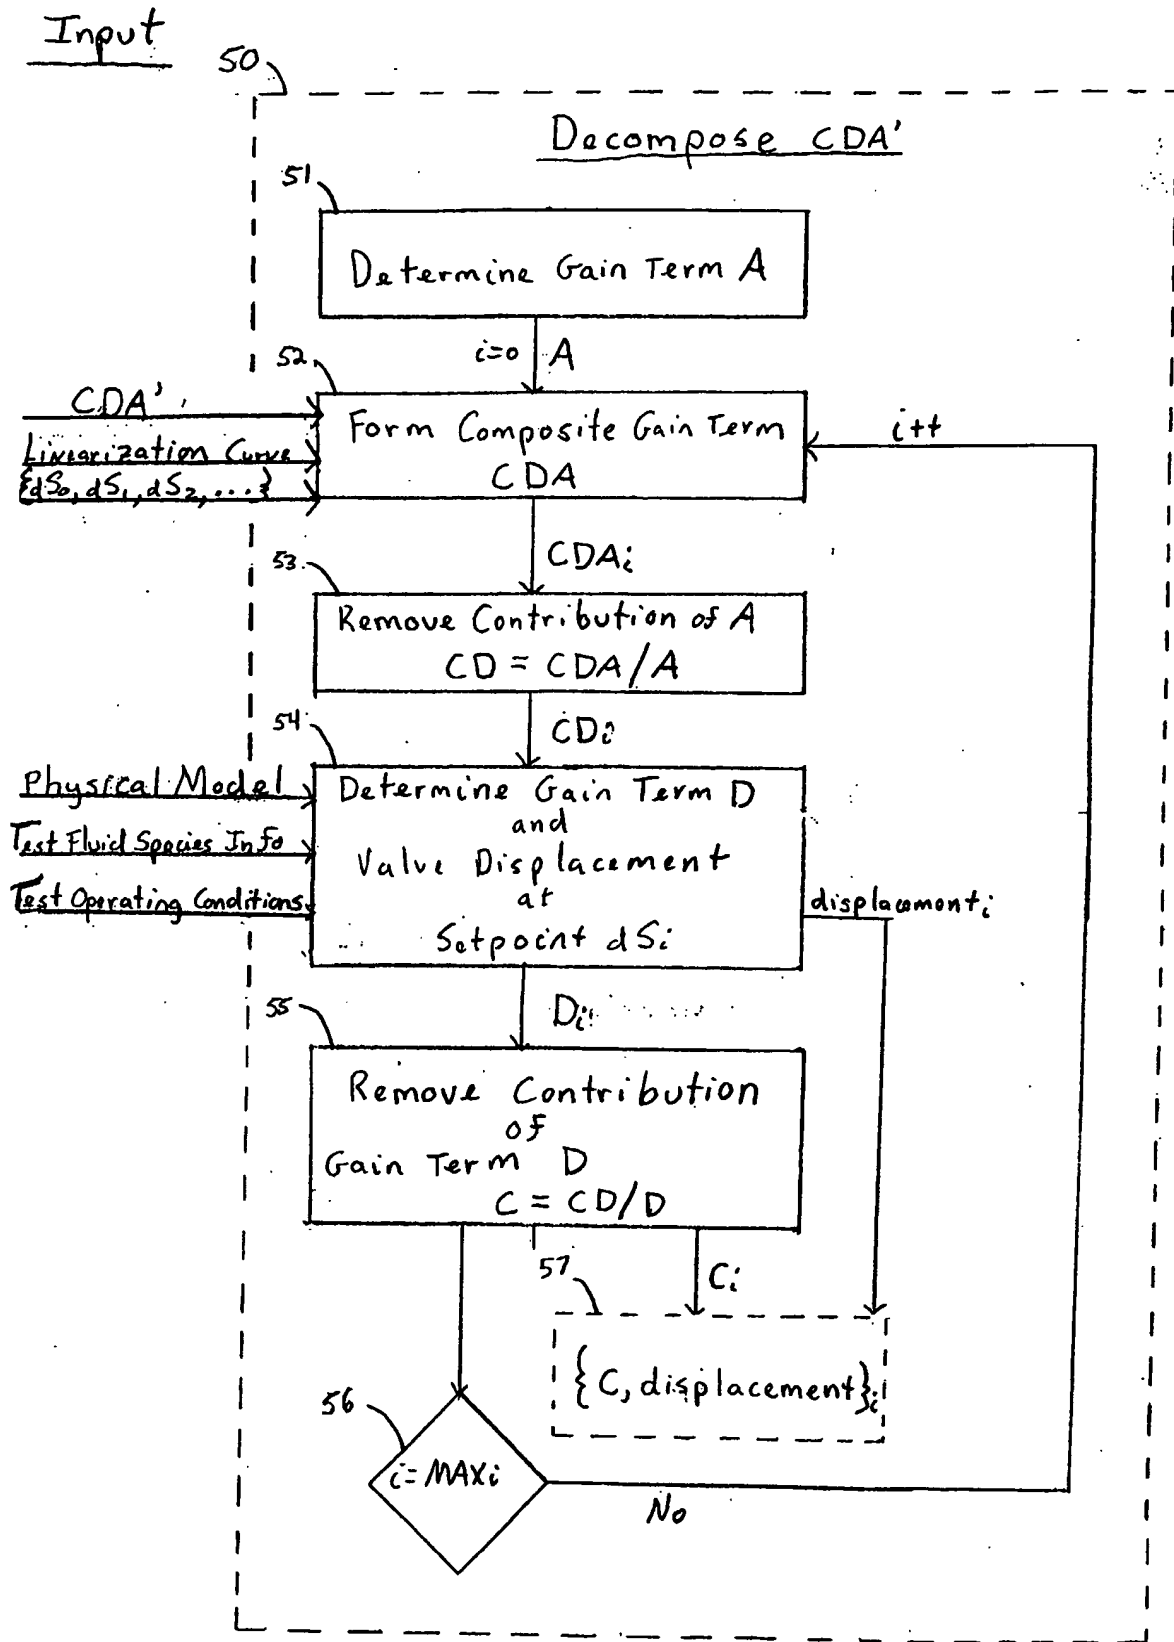 Input
50
Decompose CDA'
51
Determine Gain Term A
i=0 A
52
CDA'
Linearization Curve
{dS₀, dS₁, dS₂, ...}
Form Composite Gain Term
CDA
i++
CDAi
53
Remove Contribution of A
CD = CDA/A
CDi
54
Physical Model
Test Fluid Species Info
Test Operating Conditions
Determine Gain Term D
and
Valve Displacement
at
Setpoint dSi
displacementi
Di
55
Remove Contribution
of
Gain Term D
C = CD/D
57
Ci
{C, displacement}i
56
i=MAXi
No